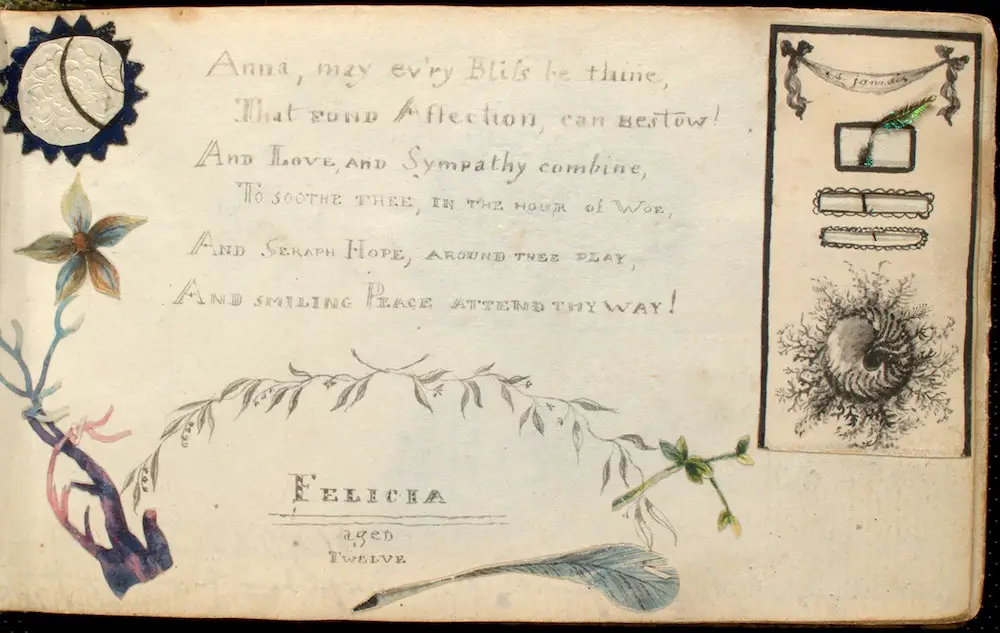 Anna, may ev'ry Bliſs be thine,
That FOND Affection, can BESTOW!
AND LOVE, AND Sympathy combine,
TO SOOTHE THEE, IN THE HOUR of WOE,
AND SERAPH HOPE, AROUND THEE PLAY,
AND SMILING PEACE ATTEND THY WAY!
FELICIA
aged
TWELVE